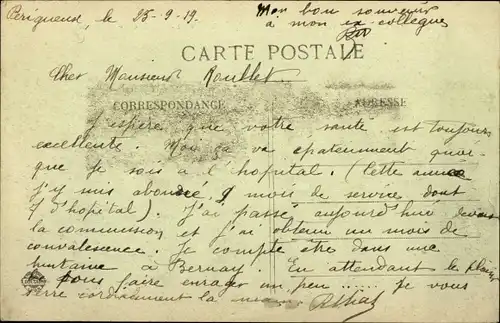 Perigueux, le 25-9-19.
Mon bon souvenir
à mon ex-collègue
CARTE POSTALE
Cher Monsieur Roullet.
CORRESPONDANCE ADRESSE
J'espère que votre santé est toujours
excellente. Moi ça va epatemment quoi-
que je sois à l'hopital. (Cette année
j'y suis abonné, 9 mois de service dont
7 d'hopital). J'ai passé aujourd'hui devant
la commission et j'ai obtenu un mois de
convalescence. Je compte être dans une
huitaine à Bernay. En attendant le plaisir
de vous faire enrager un peu ...... je vous
serre cordialement la main.